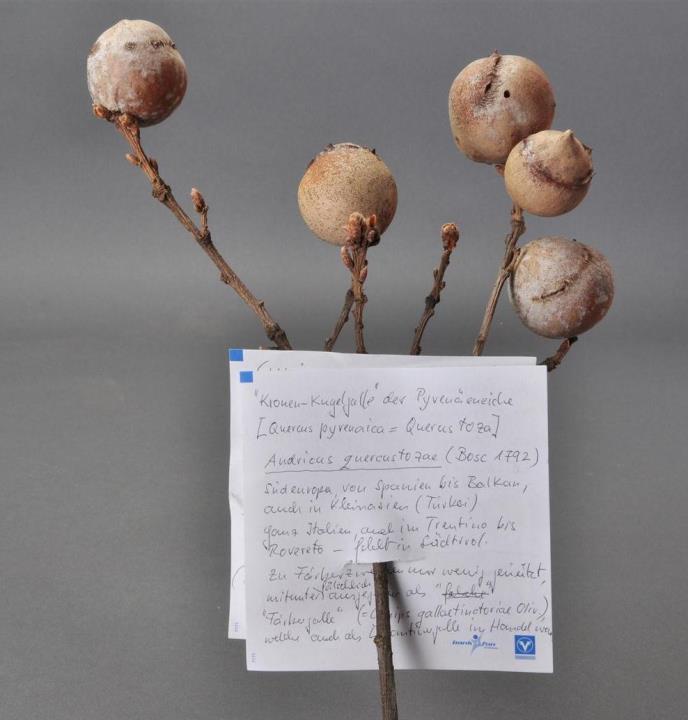 "Kronen-Kugelgalle" der Pyrenäeneiche
[Quercus pyrenaica = Quercus toza]
Andricus quercustozae (Bosc 1792)
Südeuropa, von Spanien bis Balkan,
auch in Kleinasien (Türkei)
ganz Italien, auch im Trentino bis
Rovereto – fehlt in Südtirol.
zu nur wenig geeignet,
mitunter fälschlich als "falsche"
"Färbergalle" gallaetinctoriae Oliv.)
welche auch als im Handel